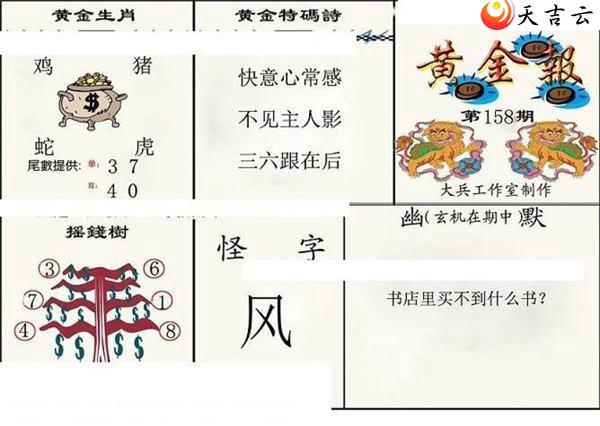 黄金生肖
鸡 猪
$
蛇 虎
尾數提供: 单: 3 7
双: 4 0
黄金特碼詩
快意心常感
不见主人影
三六跟在后
天吉云
黄金報
第158期
大兵工作室制作
摇錢樹
③ ⑥
⑦ ①
④ ⑧
怪 字
风
幽(玄机在期中)默
书店里买不到什么书?